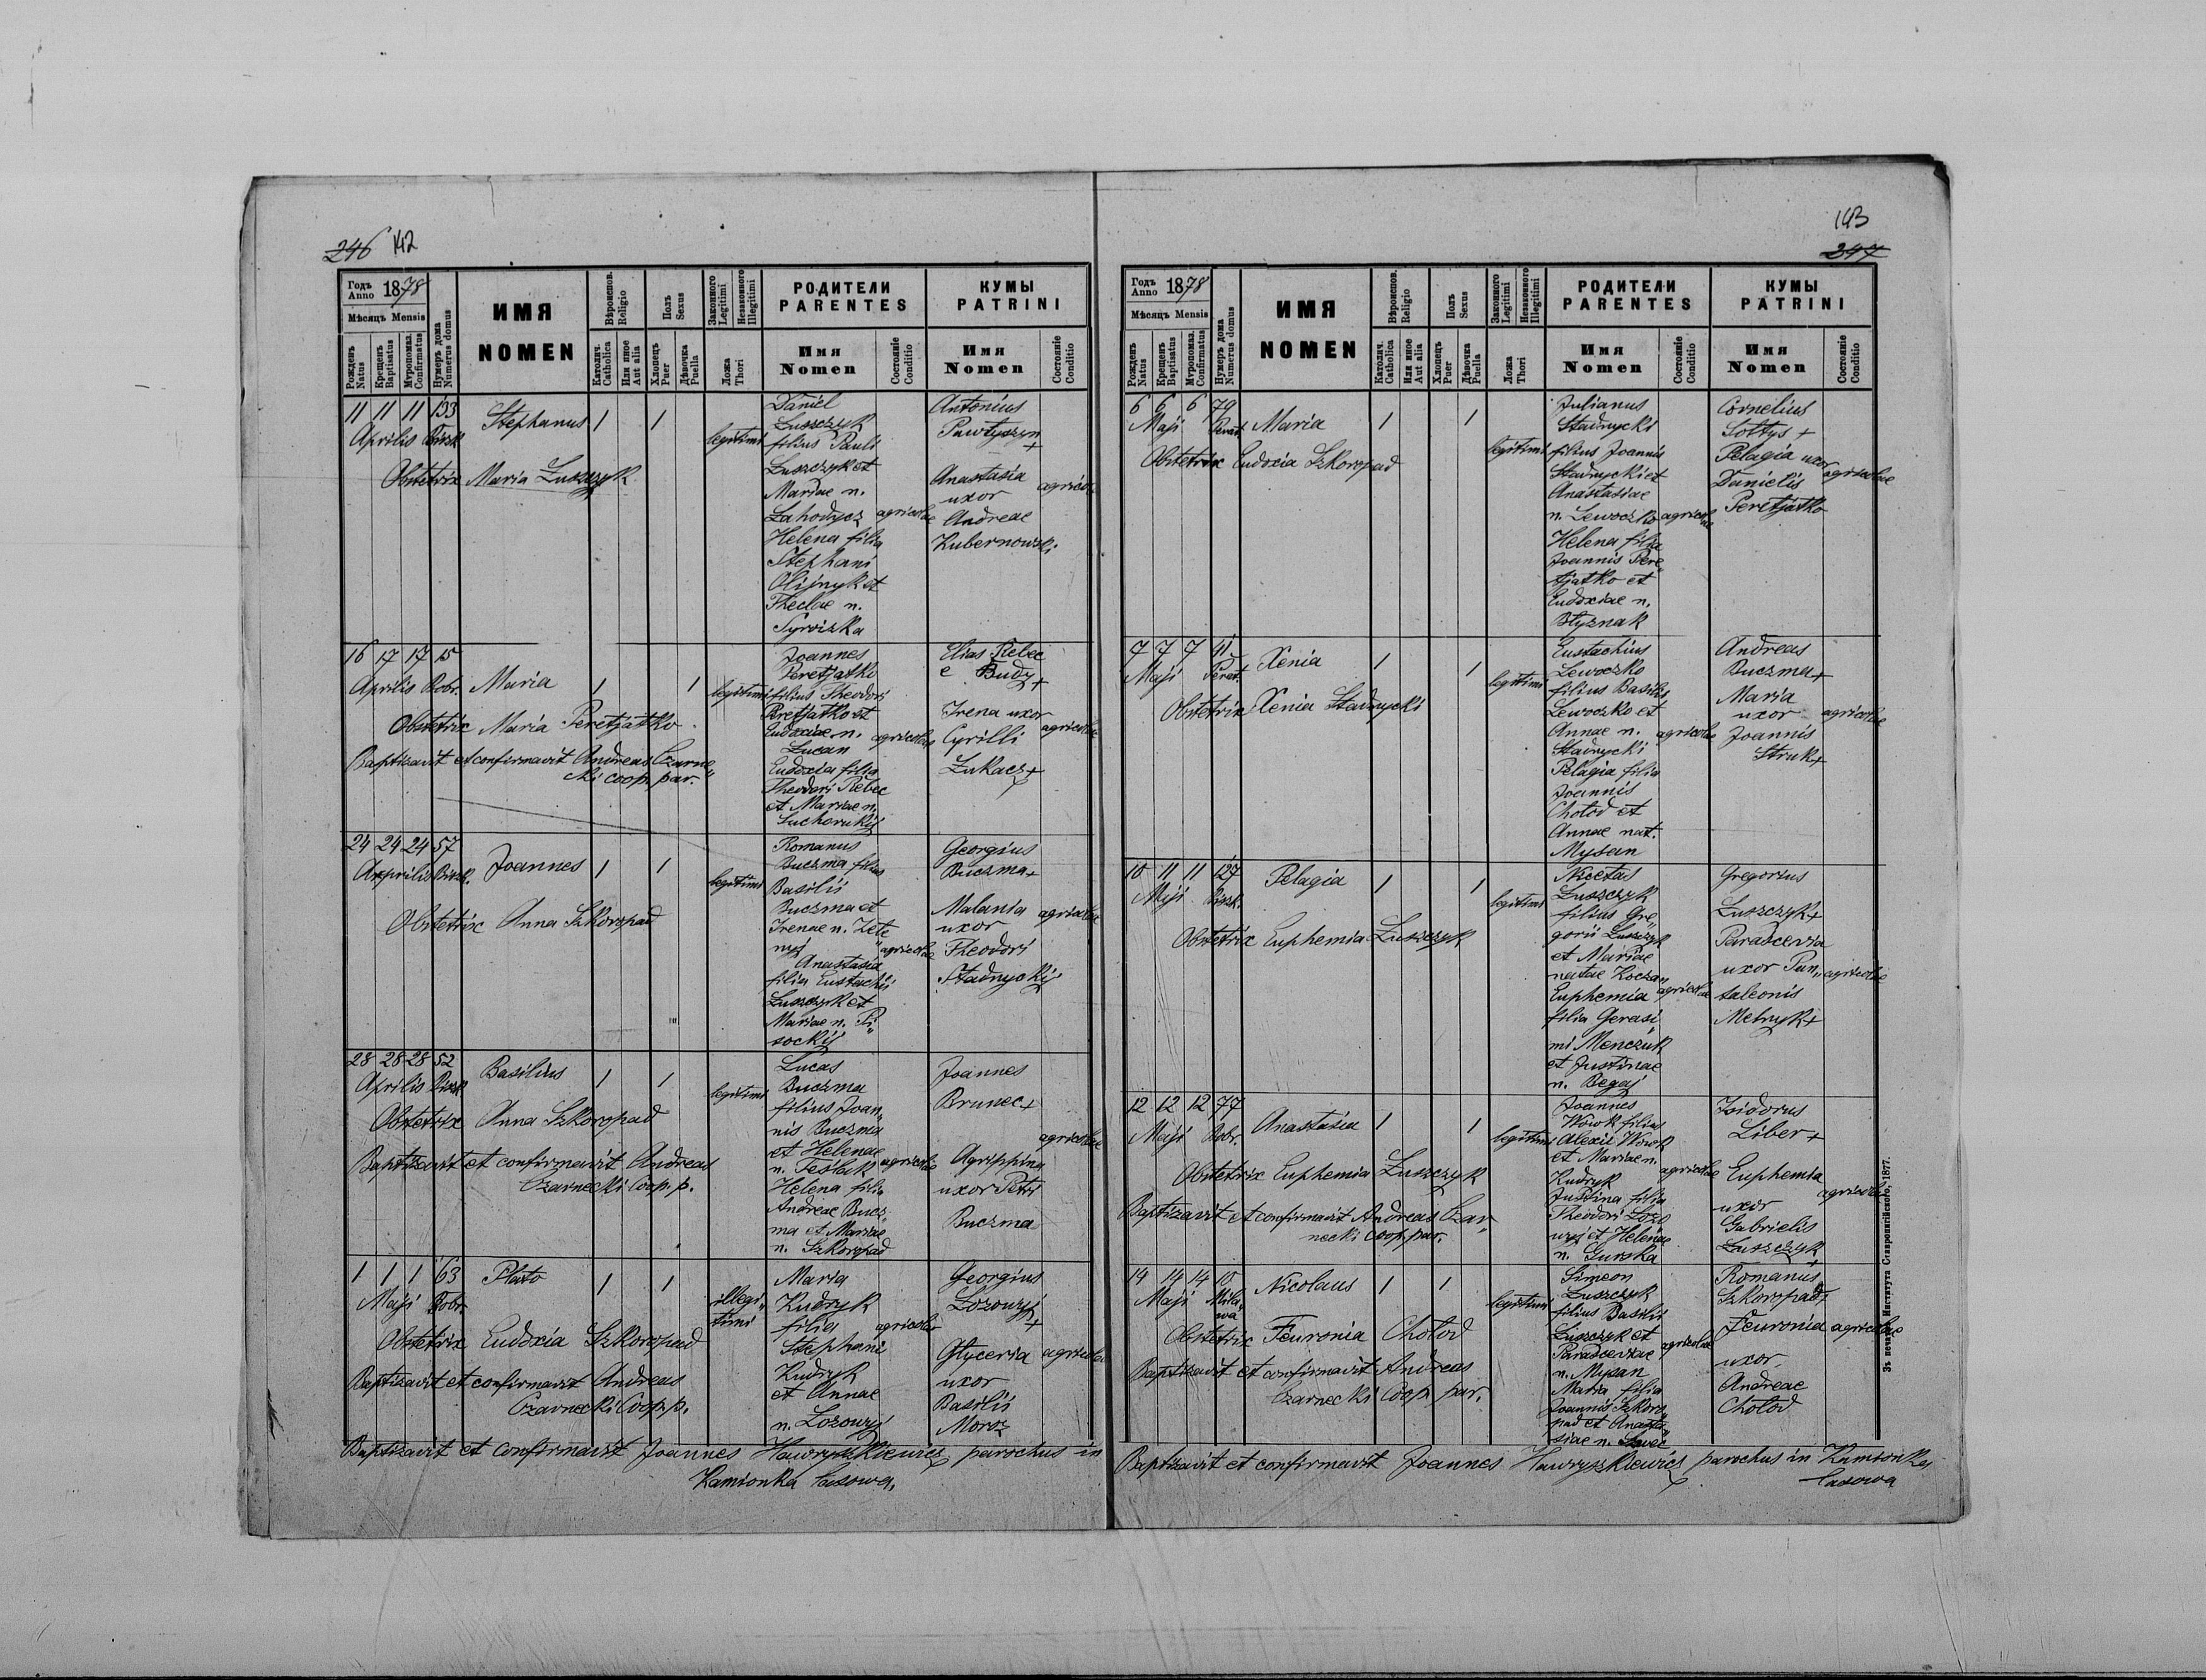 246 142
Годъ Anno 1878
Мѣсяцъ Mensis
Рожденъ Natus
Крещенъ Baptisatus
Мvропомаз. Confirmatus
Нумеръ дома Numerus domus
ИМЯ
NOMEN
Вѣроисповѣ. Religio
Католич. Catholica
Или иное Aut alia
Полъ Sexus
Хлопецъ Puer
Дѣвочка Puella
Законного Legitimi
Незаконного Illegitimi
Ложа Thori
РОДИТЕЛИ
PARENTES
Имя
Nomen
Состояніе Conditio
КУМЫ
PATRINI
Имя
Nomen
Состояніе Conditio
11 11 11 133
Aprilis
Stephanus 1 1
legitimi
Obstetrix Maria Łuszczyk
Daniel
Łuszczyk
filius Pauli
Łuszczyk et
Mariae n.
Łahodycz agricolae
Helena filia
Stephani
Olijnyk et
Theclae n.
Syroizka
Antonius
Pawłyszyn
+
Anastasia
uxor
Andreae
Kubernowski
agricolae
16 17 17 15
Aprilis Dobr. Maria 1 1 legitimi
Obstetrix Maria Peretjatko
Baptizavit et confirmavit Andreas Czarne„
cki coop. par.
Joannes
Peretjatko
filius Theodori
Peretjatko et
Eudoxiae n.
Lucan
agricolae
Eudoxia filia
Theodori Rebec
et Mariae n.
Sucherukij
Elias Rebec
e Budy +
Irena uxor
Cyrilli
Łukacz +
agricolae
24 24 24 57
Aprilis Joannes 1 1
legitimi
Obstetrix Anna Szkoropad
Romanus
Buczma filius
Basilii
Buczma et
Irenae n. Zele„
nyj agricolae
Anastasia
filia Eustachii
Łuszczyk et
Mariae n. Pi„
sockij
Georgius
Buczma +
Malania
uxor
Theodori
Stadnyckij
agricolae
28 28 28 52
Aprilis Basilius 1 1
legitimi
Obstetrix Anna Szkoropad
Baptizavit et confirmavit Andreas
Czarnecki Coop. p.
Lucas
Buczma
filius Joan„
nis Buczma
et Helenae
n. Teslak agricolae
Helena filia
Andreae Bucz„
ma et Mariae
n. Szkoropad
Joannes
Brunec +
Agrippina
uxor Petri
Buczma
agricolae
1 1 1 63
Maji Dobr. Plato 1 1
illegi„
timi
Obstetrix Eudoxia Szkoropad
Baptizavit et confirmavit Andreas
Czarnecki Coop. p.
Maria
Kudryk
filia agricolae
Stephani
Kudryk
et Annae
n. Lozowyj
Georgius
Lozowyj
+
Glyceria
uxor
Basilii
Moroz
agricolae
Baptizavit et confirmavit Joannes Hawryszkiewicz parochus in
Kamionka lasowa.
143
247
Годъ Anno 1878
Мѣсяцъ Mensis
Рожденъ Natus
Крещенъ Baptisatus
Мvропомаз. Confirmatus
Нумеръ дома Numerus domus
ИМЯ
NOMEN
Вѣроисповѣ. Religio
Католич. Catholica
Или иное Aut alia
Полъ Sexus
Хлопецъ Puer
Дѣвочка Puella
Законного Legitimi
Незаконного Illegitimi
Ложа Thori
РОДИТЕЛИ
PARENTES
Имя
Nomen
Состояніе Conditio
КУМЫ
PATRINI
Имя
Nomen
Состояніе Conditio
6 6 6 79
Maji Perat. Maria 1 1
legitimi
Obstetrix Eudoxia Szkoropad
Julianus
Stadnycki
filius Joannis
Stadnycki et
Anastasiae
n. Lewoczko agricolae
Helena filia
Joannis Pere„
tjatko et
Eudoxiae n.
Błyznak
Cornelius
Sołtys +
Pelagia uxor
Danielis
Peretjatko
agricolae
7 7 7 41
Maji Perat. Xenia 1 1
legitimi
Obstetrix Xenia Stadnycki
Eustachius
Lewoczko
filius Basilii
Lewoczko et
Annae n. agricolae
Stadnycki
Pelagia filia
Joannis
Chołod et
Annae nat.
Mysan
Andreas
Buczma +
Maria
uxor
Joannis
Struk +
agricolae
10 11 11 127
Maji Pelagia 1 1
legitimi
Obstetrix Euphemia Łuszczyk
Nicetas
Łuszczyk
filius Gre„
gorii Łuszczyk
et Mariae
natae Koczan„
Euphemia agricolae
filia Gerasi„
mi Menczuk
et Justinae
n. Begaj
Gregorius
Łuszczyk +
Parascevia
uxor Pan„
taleonis
Melnyk +
agricolae
12 12 12 77
Maji Dobr. Anastasia 1 1
legitimi
Obstetrix Euphemia Łuszczyk
Baptizavit et confirmavit Andreas Czar„
necki coop. par.
Joannes
Wowk filius
Alexii Wowk
et Mariae n.
Kudryk agricolae
Justina filia
Theodori Lozo„
wyj et Helenae
n. Gurska
Isidorus
Liber +
Euphemia
uxor
Gabrielis
Łuszczyk
+
agricolae
14 14 14 10
Maji Nicolaus 1 1
legitimi
Obstetrix Feuronia Chołod
Baptizavit et confirmavit Andreas
Czarnecki Coop. par.
Simeon
Łuszczyk
filius Basilii
Łuszczyk et
Parasceviae agricolae
n. Mysan
Maria filia
Joannis Szkoro„
pad et Anasta„
siae n.
Romanus
Szkoropad +
Feuronia agricolae
uxor
Andreae
Chołod
Baptizavit et confirmavit Joannes Hawryszkiewicz parochus in Kamionka
lasowa
Зъ печатнѣ Института Ставропигійского, 1877.